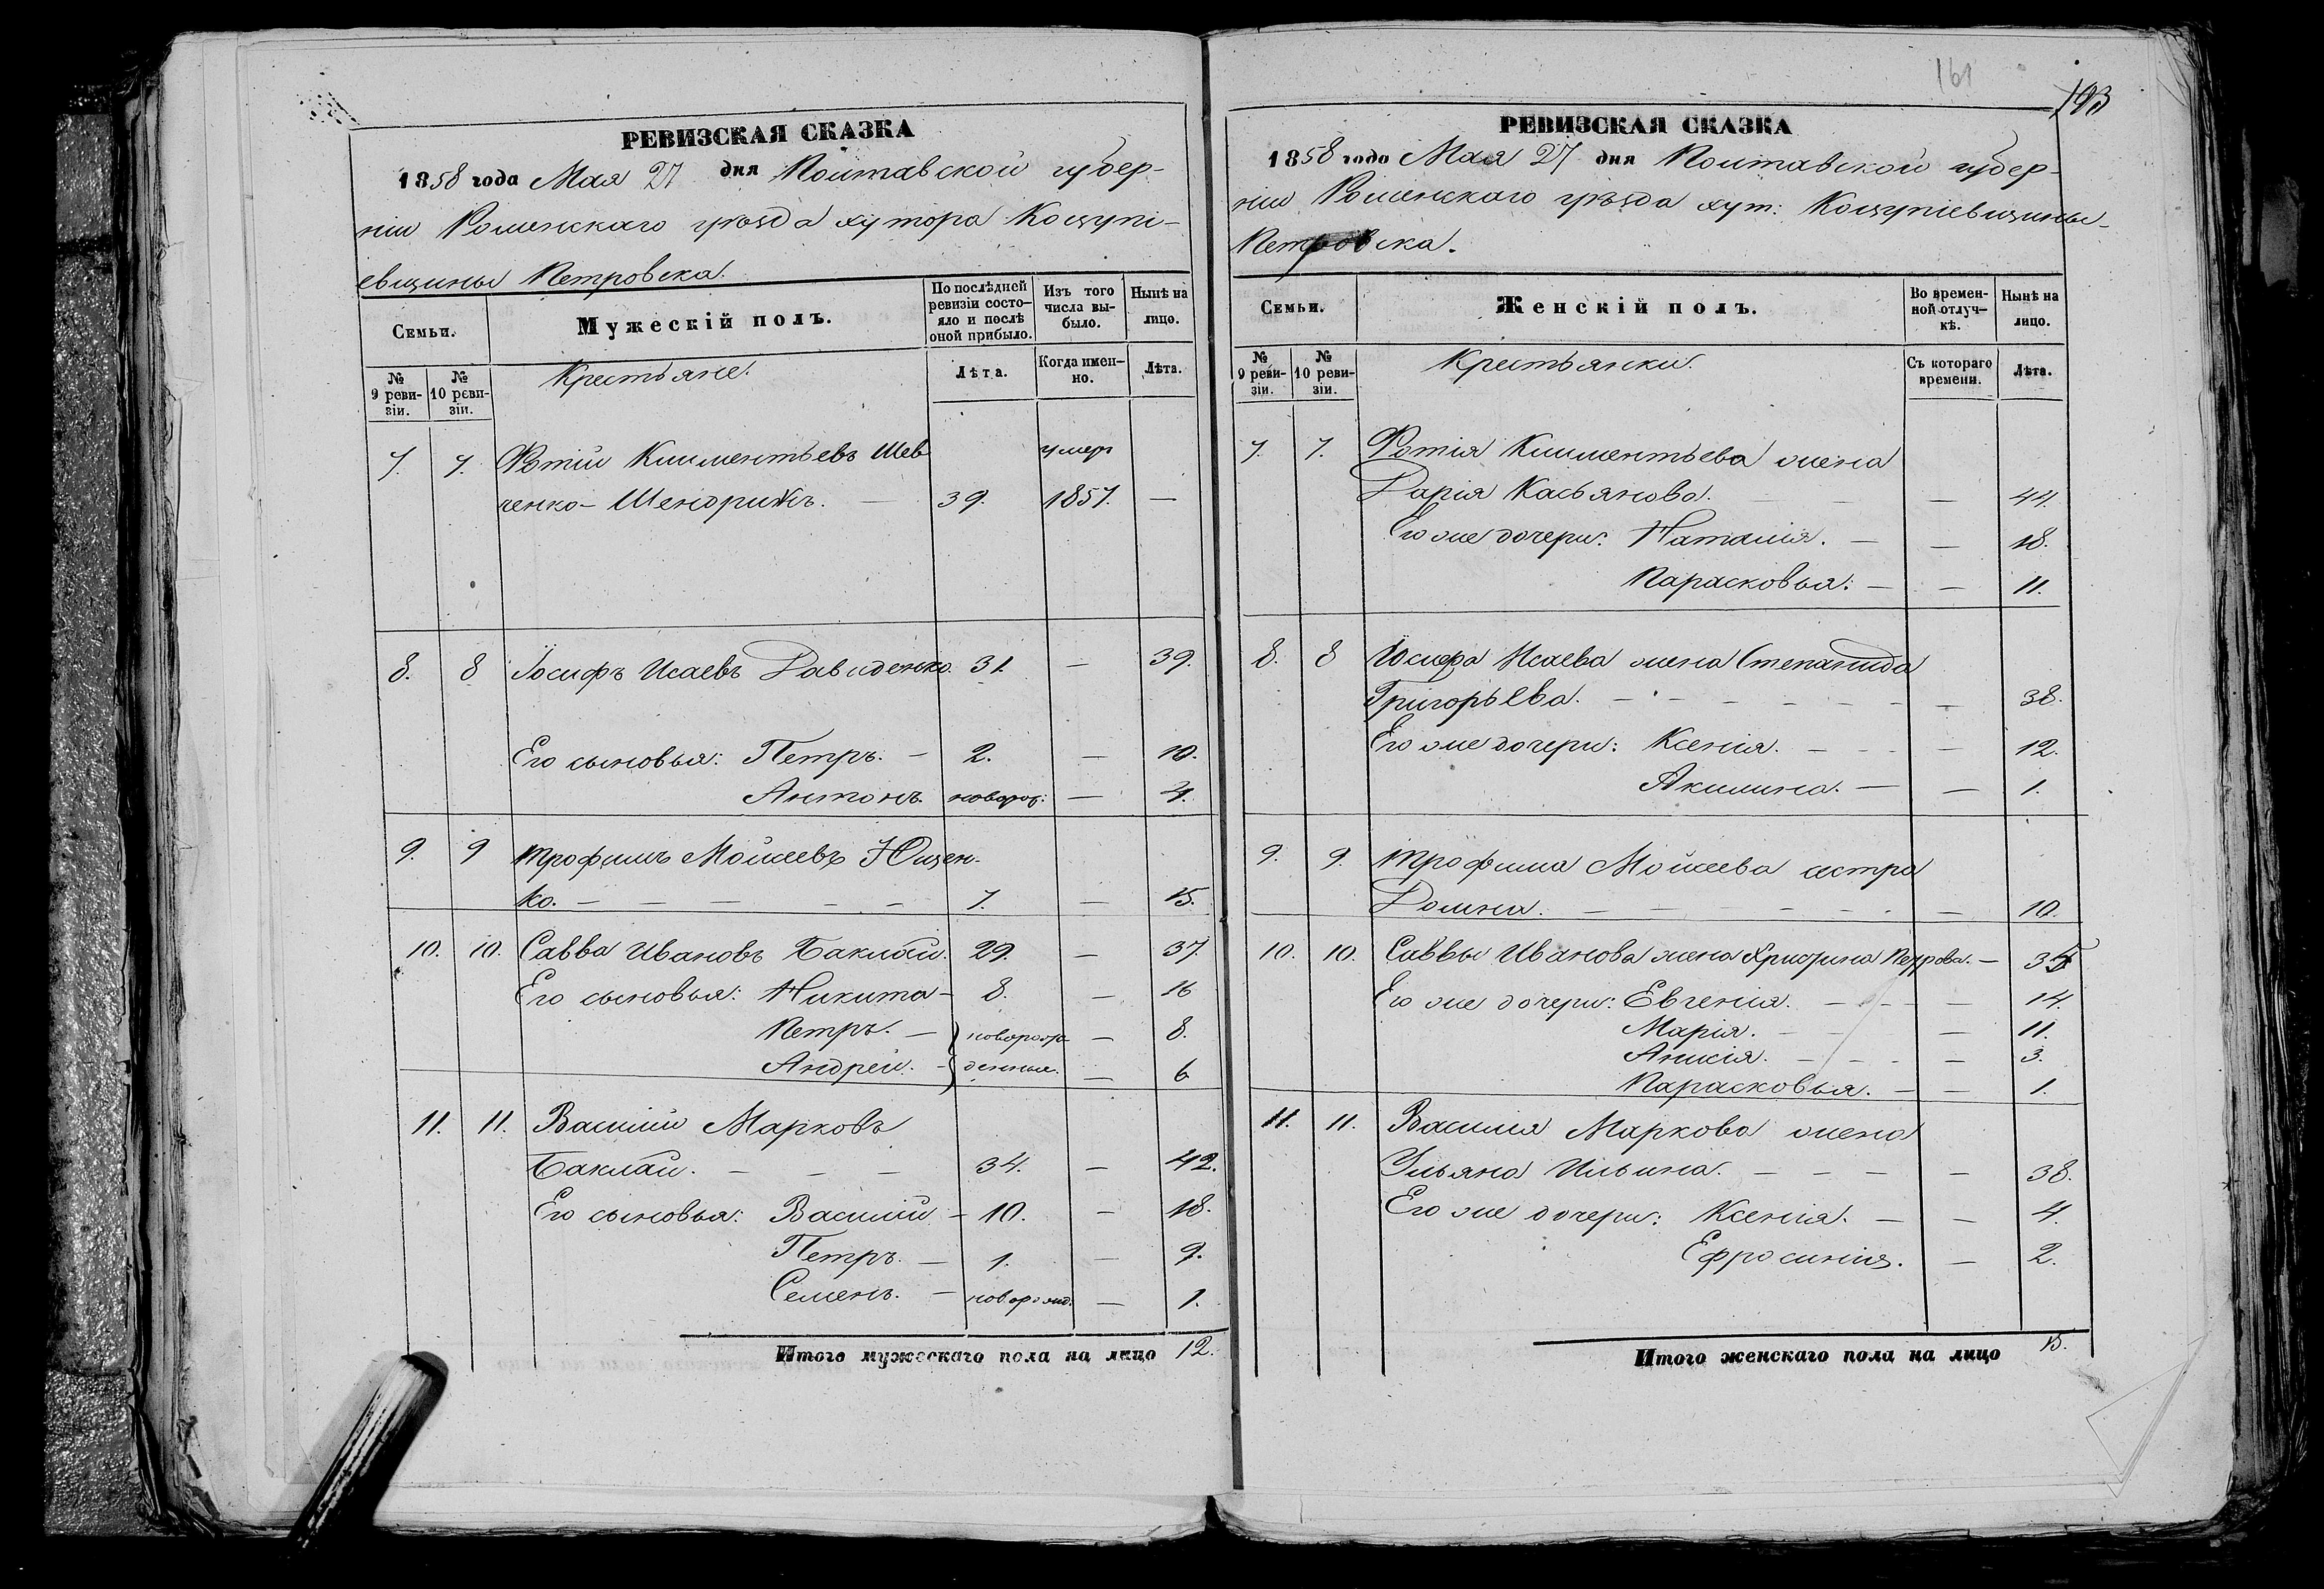 РЕВИЗСКАЯ СКАЗКА
1858 года Мая 27 дня Полтавской губер-
ніи Роменскаго уѣзда хутора Коцупі-
евщины Петровска.
Семьи.
Мужескій полъ.
По послѣдней ревизіи состо-яло и послѣ оной прибыло.
Изъ того числа вы-было.
Нынѣ на лицо.
№ 9 реви-зіи.
№ 10 реви-зіи.
Крестьяне.
Лѣта.
Когда имен-но.
Лѣта.
7. 7. Фотій Климентьевъ Шев умеръ
ченко-Шендрикъ. — 39. 1857. —
8. 8 Іосифъ Исаевъ Давиденко. 31. — 39.
Его сыновья: Петръ. — 2. — 10.
Антонъ. новорож: — 4.
9. 9 Трофимъ Мойсеевъ Ющен-
ко. — — — — — 7. — 15.
10. 10. Савва Ивановъ Баклай. 29. — 37.
Его сыновья: Никита — 8. — 16
Петръ. — новорож- — 8.
Андрей. — денные. — 6
11. 11. Василій Марковъ
Баклай. — — — 34. — 42.
Его сыновья: Василій — 10. — 18.
Петръ. — 1. — 9.
Семенъ. — оворожд: — 1.
Итого мужескаго пола на лицо 12.
161
193
РЕВИЗСКАЯ СКАЗКА
1858 года Мая 27 дня Полтавской губер-
ніи Роменскаго уѣзда хут: Коцупіевщины-
Петровска.
Семьи.
Женскій полъ.
Во времен-ной отлуч-кѣ.
Нынѣ на лицо.
№ 9 реви-зіи.
№ 10 реви-зіи.
Крестьянки.
Съ котораго времени.
Лѣта.
7. 7. Фотія Климентьева жена
Дарія Касьянова. — 44.
Его же дочери: Наталія. — — 18.
Парасковья: — — 11.
8. 8 Іосифа Исаева жена Степанида
Григорьева. — — — — — — — 38.
Его же дочери: Ксенія. — — — 12.
Акилина. — — 1.
9. 9. Трофима Мойсеева сестра
Домна. — — — — — — — 10.
10. 10. Саввы Иванова жена Христина Петрова. — 35
Его же дочери: Евгенія. — — — 14.
Марія. — — — 11.
Анисія. — — — — 3.
Парасковья. — — 1.
11. 11. Василія Маркова жена
Ульяна Ильина. — — — — — 38.
Его же дочери: Ксенія. — — 4.
Ефросинія. — 2.
Итого женскаго пола на лицо 13.